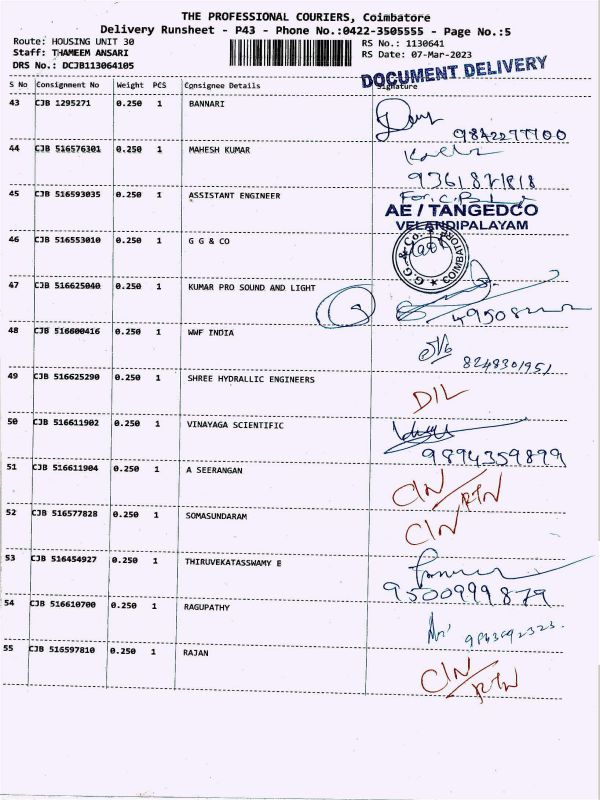 THE PROFESSIONAL COURIERS, Coimbatore
Delivery Runsheet - P43 - Phone No.:0422-3505555 - Page No.:5
Route: HOUSING UNIT 30
RS No.: 1130641
Staff: THAMEEM ANSARI
RS Date: 07-Mar-2023
DRS No.: DCJB113064105
DOCUMENT DELIVERY
S No Consignment No Weight PCS Consignee Details Signature
43 CJB 1295271 0.250 1 BANNARI
9842277700
44 CJB 516576301 0.250 1 MAHESH KUMAR
45 CJB 516593035 0.250 1 ASSISTANT ENGINEER
AE / TANGEDCO
VELANDIPALAYAM
46 CJB 516553010 0.250 1 G G & CO
G.G. & Co. COIMBATORE
47 CJB 516625040 0.250 1 KUMAR PRO SOUND AND LIGHT
48 CJB 516600416 0.250 1 WWF INDIA
8248301951
49 CJB 516625290 0.250 1 SHREE HYDRALLIC ENGINEERS
DIL
50 CJB 516611902 0.250 1 VINAYAGA SCIENTIFIC
9894359899
51 CJB 516611904 0.250 1 A SEERANGAN
CIN/RTN
52 CJB 516577828 0.250 1 SOMASUNDARAM
CIN
53 CJB 516454927 0.250 1 THIRUVEKATASSWAMY E
9500999879
54 CJB 516610700 0.250 1 RAGUPATHY
55 CJB 516597810 0.250 1 RAJAN
CIN/RTN